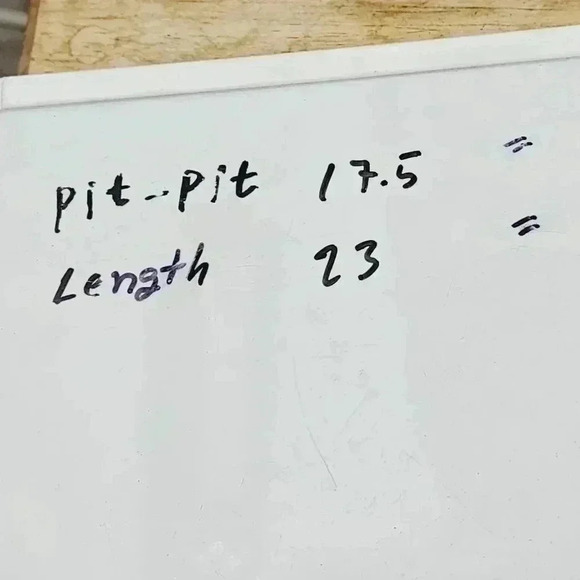 pit-pit 17.5 "
Length 23 "